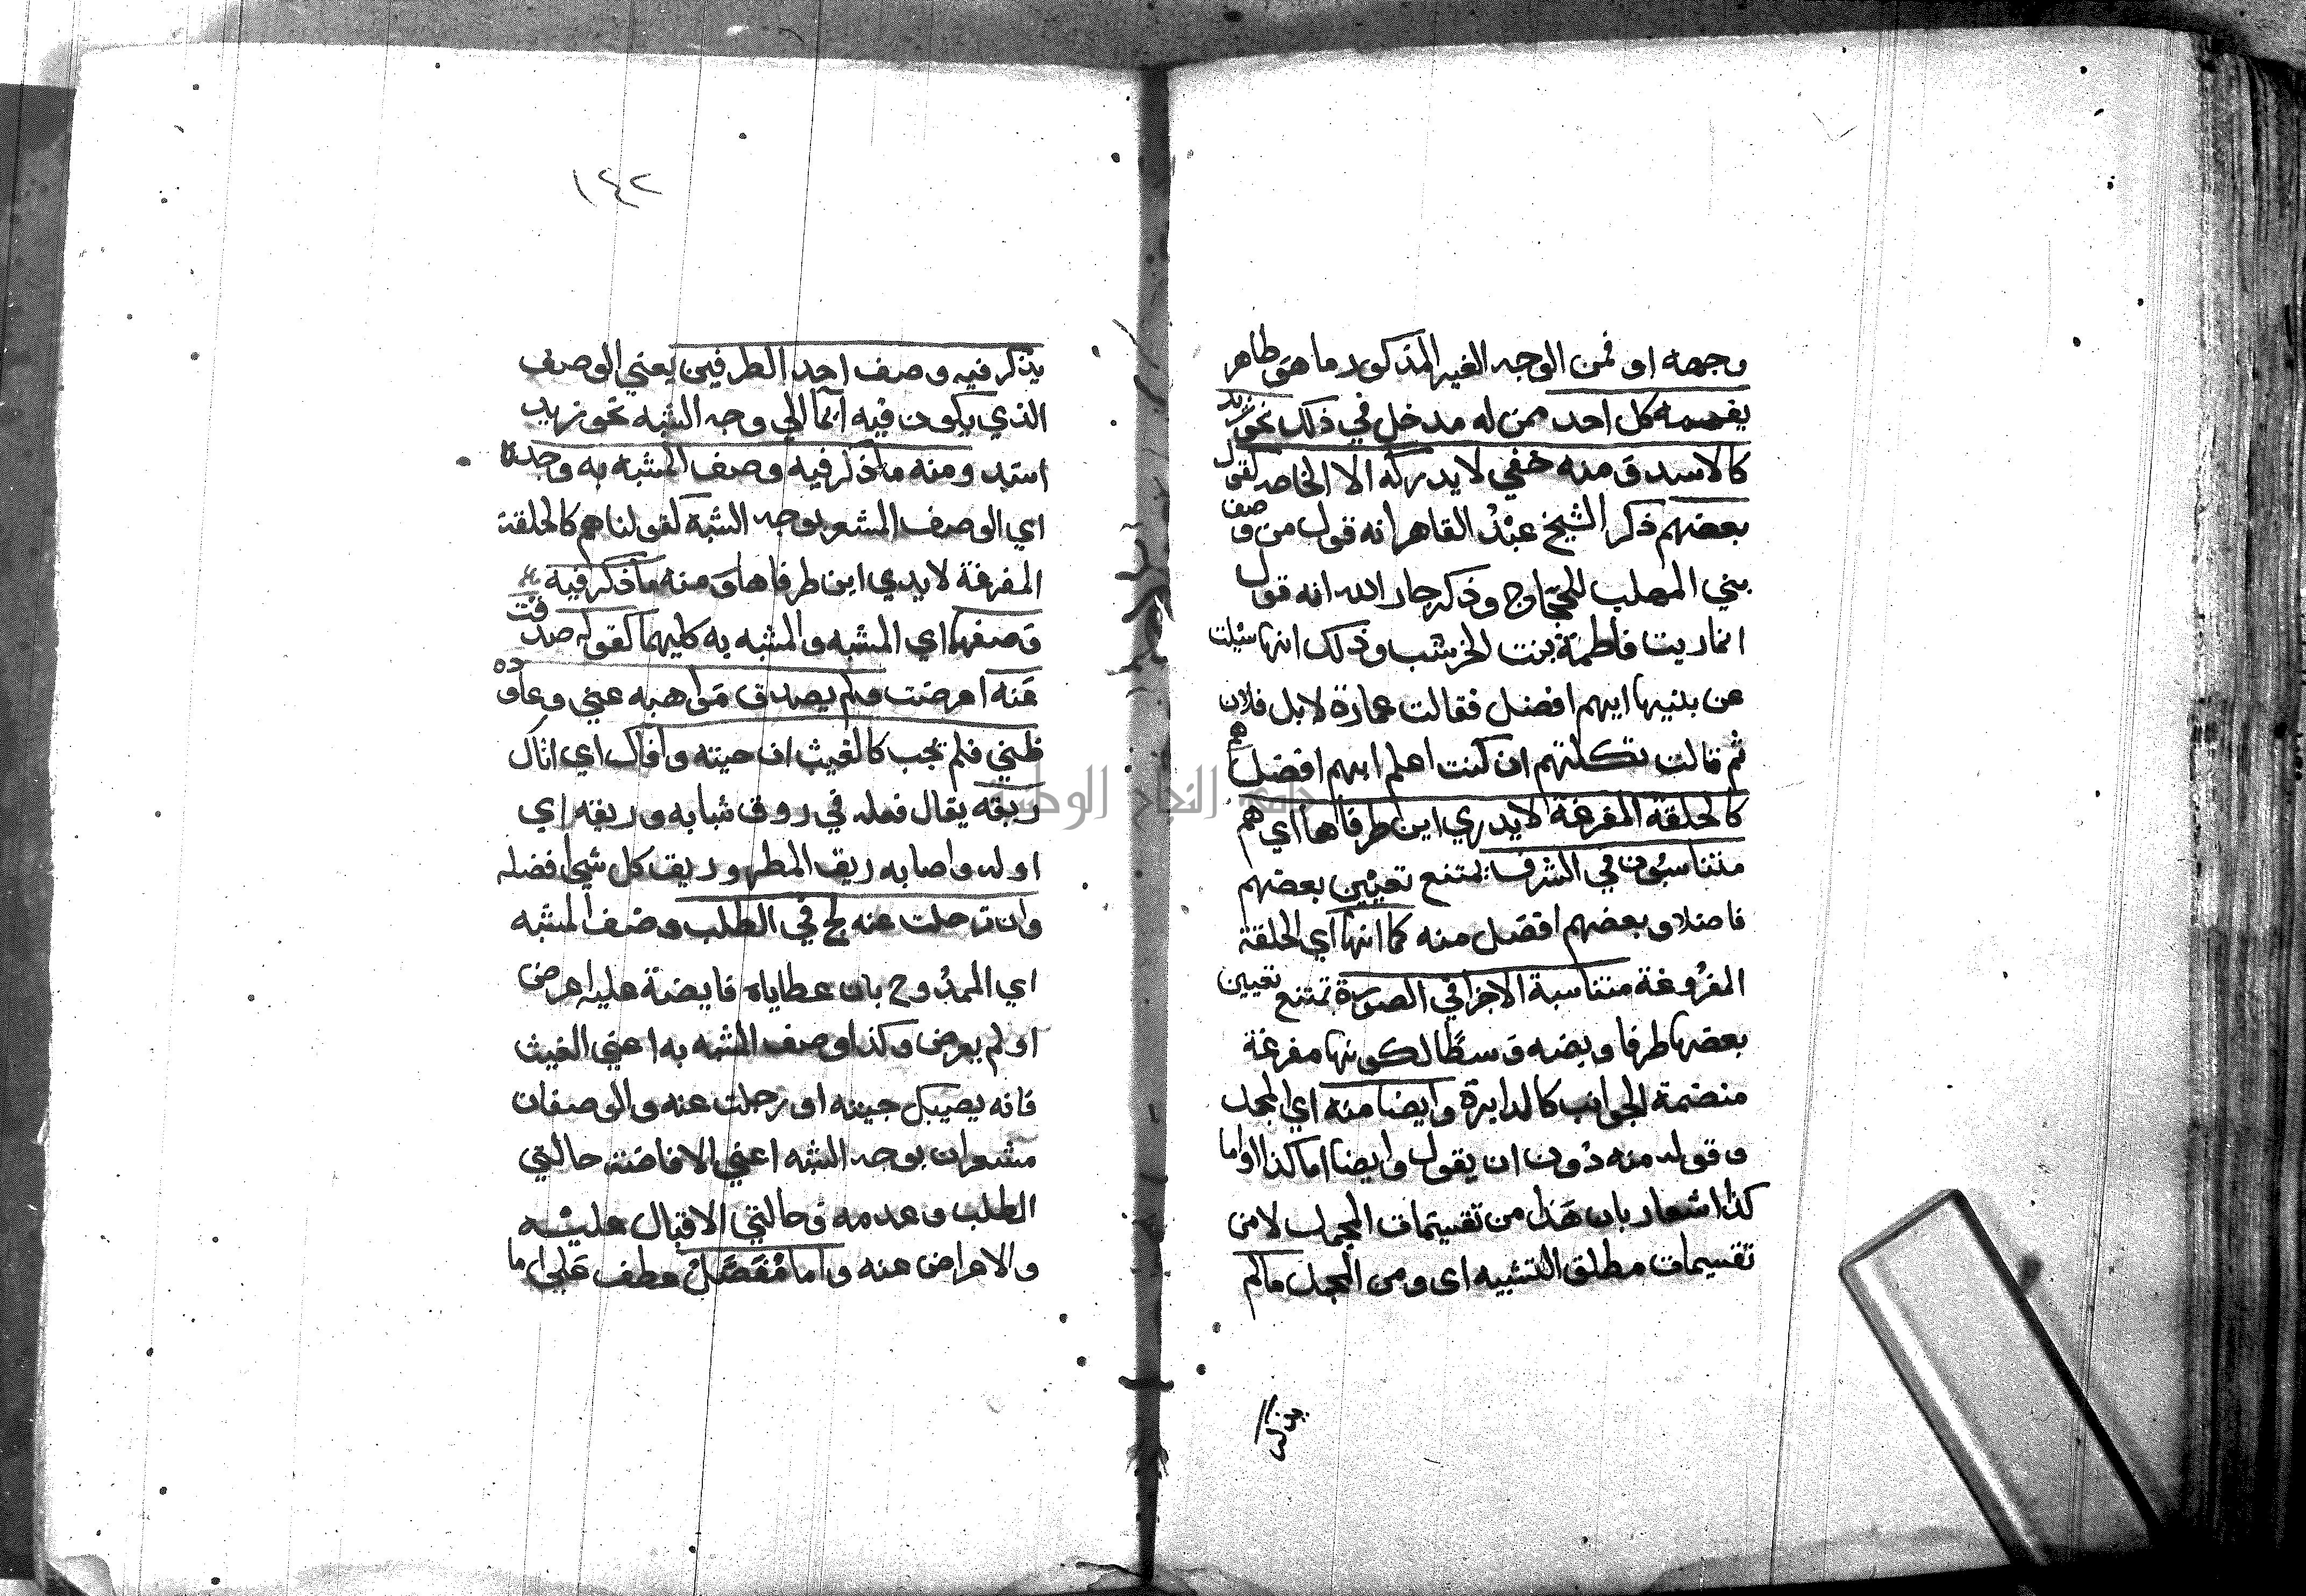 وجهه او فمن الوجه الغير المذكور ما هو ظاهر
يفهمه كل احد ممن له مدخل في ذلك نحو زيد
كالاسد ومنه خفي لا يدركه الا الخاصه كقول
بعضهم ذكر الشيخ عبد القاهر انه قول من وصف
بني المهلب للحجاج وذكر جار الله انه قول
انماريت فاطمة بنت الخرشب وذلك انها سئلت
عن بنيها ايهم افضل فقالت عمارة لا بل فلان
ثم قالت ثكلتهم ان كنت اعلم ايهم افضل هم
كالحلقة المفرغة لا يدري اين طرفاها اي هم
متناسبون في الشرف يمتنع تعيين بعضهم
فاضلا وبعضهم افضل منه كما انها اي الحلقة
المفروغة متناسبة الاجزا في الصورة تمتنع تعيين
بعضها طرفا وبضه وسطا لكونها مفرغة
منضمة الجوانب كالدايرة وايضا منه اي المجمل
وقوله منه دون ان يقول وايضا اما كذا او اما
كذا اشعار بان هذا من تقسيمات المجمل لا من
تقسيمات مطلق التشبيه اى ومن المجمل مالم
١٤٢
يذكر فيه وصف احد الطرفين يعني الوصف
الذي يكون فيه ايما الي وجه الشبه نحو زيد
اسد ومنه ما ذكر فيه وصف المشبه به وحده
اي الوصف المشعر بوجه الشبه كقولنا هم كالحلقة
المفرغة لا يدي اين طرفاها ومنه ما ذكر فيه
وصفهما اي المشبه والمشبه به كليهما كقوله صدفت
عنه اعرضت ولم يصدق مواهبه عني وعاوده
ظني فلم تجب كالغيث ان جيته وافاك اي اتاك
ريقه يقال فعله في روق شبابه وريقه اي
اوله واصابه ريق المطر وريق كل شي افضله
وان ترحلت عنه لج في الطلب وصف المشبه
اي الممدوح بان عطاياه فايضة عليه اعرض
او لم يعرض وكذا وصف المشبه به اعني الغيث
فانه يصيبك جيته او ترحلت عنه والوصفان
مشعران بوجه الشبه اعني الافاضة حالتي
الطلب وعدمه وحالتي الاقبال عليه
والاعراض عنه واما مفصل عطف علي اما